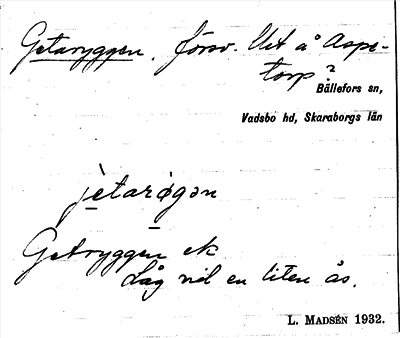 Getaryggen. försv. Utt å Aspe-
torp?
Bällefors sn,
Vadsbo hd, Skaraborgs län
jètarøgən
Getryggen ek
Låg vid en liten ås.
L. MADSÉN 1932.